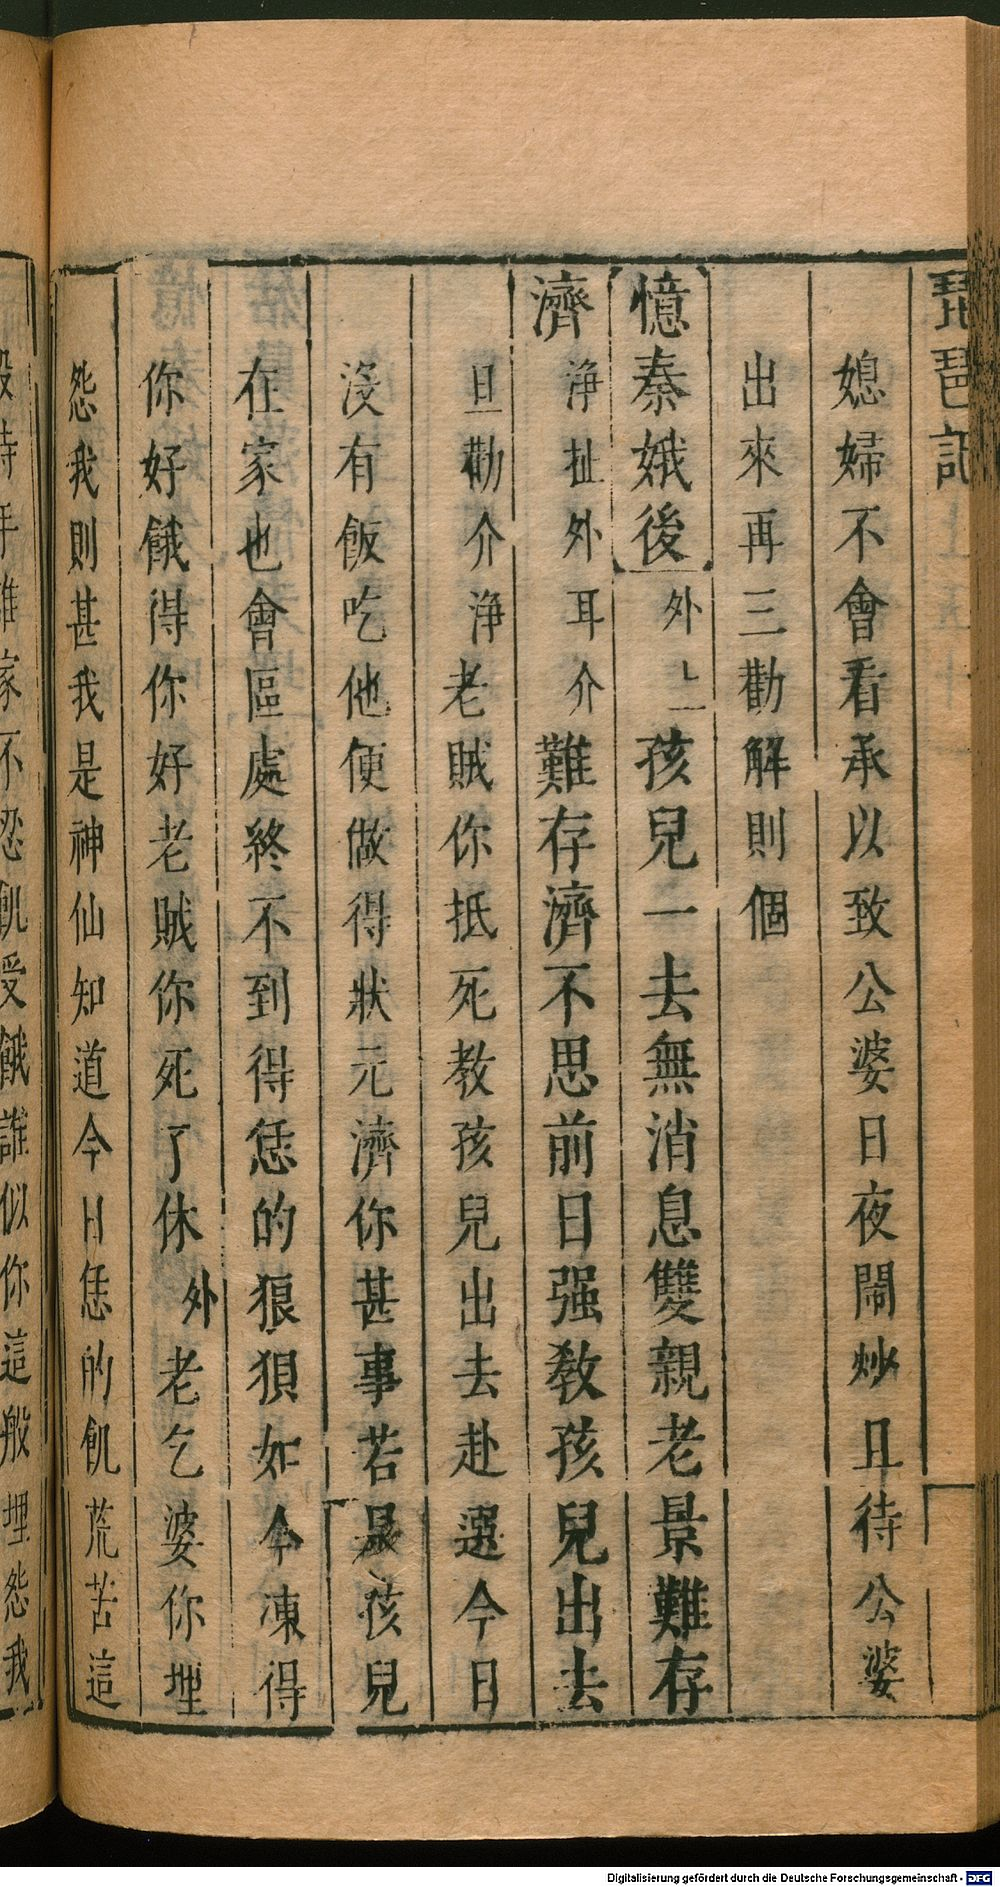 琵琶記
媳婦不會看承以致公婆日夜鬧炒且待公婆
出來再三勸解則個
憶秦娥後 外上 孩兒一去無消息雙親老景難存
濟 浄扯外耳介 難存濟不思前日强敎孩兒出去
旦勸介浄老賊你抵死教孩兒出去赴選今日
沒有飯吃他便做得狀元濟你甚事若是孩兒
在家也會區處終不到得恁的狼狽如今凍得
你好餓得你好老賊你死了休 外 老乞婆你埋
怨我則甚我是神仙知道今日恁的飢荒苦這
般時年誰家不忍飢受餓誰似你這般埋怨我
Digitalisierung gefördert durch die Deutsche Forschungsgemeinschaft - DFG